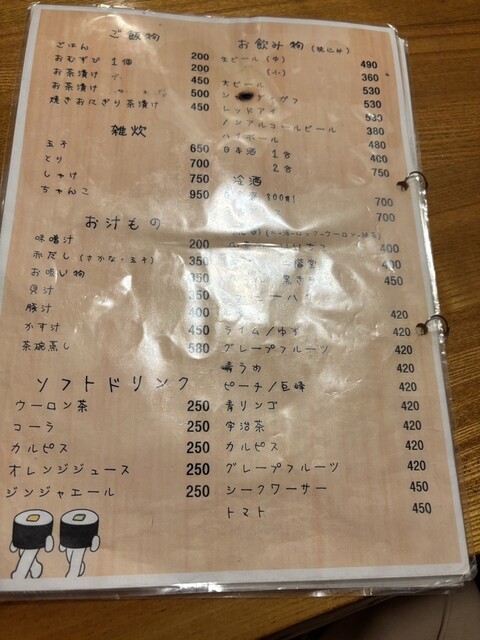 ご飯物
ごはん 200
おむすび 1個 200
お茶漬け 450
お茶漬け 500
焼きおにぎり茶漬け 450
雑炊
玉子 650
とり 700
しゃけ 750
ちゃんこ 950
お汁もの
味噌汁 200
赤だし (さかな・玉子) 350
お吸い物 350
貝汁 350
豚汁 400
かす汁 450
茶碗蒸し 580
ソフトドリンク
ウーロン茶 250
コーラ 250
カルピス 250
オレンジジュース 250
ジンジャエール 250
お飲み物 (税込み)
生ビール (中) 490
(小) 360
大ビール 530
シャンディガフ 530
レッドアイ 530
ノンアルコールビール 380
ハイボール 480
日本酒 1合 400
2合 750
冷酒
300ml 700
700
400
400
450
420
ライム/ゆず 420
グレープフルーツ 420
青うめ
ピーチ/巨峰 420
青リンゴ 420
宇治茶 420
カルピス 420
グレープフルーツ 420
シークワーサー 450
トマト 450